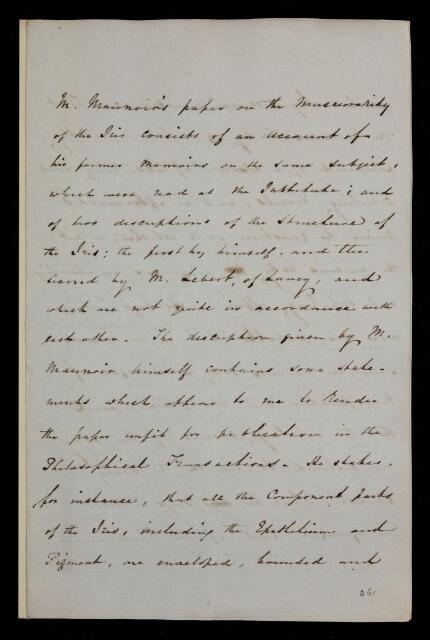 M. Maunoir's paper on the Muscularity
of the Iris consists of an account of
his former Memoirs on the same subject,
which were read at the Institute; and
of two descriptions of the Structure of
the Iris; the first by himself, and the
second by M. Lebert, of Lavey, and
which are not quite in accordance with
each other. The description given by M.
Maunoir himself contains some state-
ments which appear to me to render
the paper unfit for publication in the
Philosophical Transactions. He states,
for instance, that all the Component parts
of the Iris, including the Epithelium and
Pigment, are enveloped, bounded and